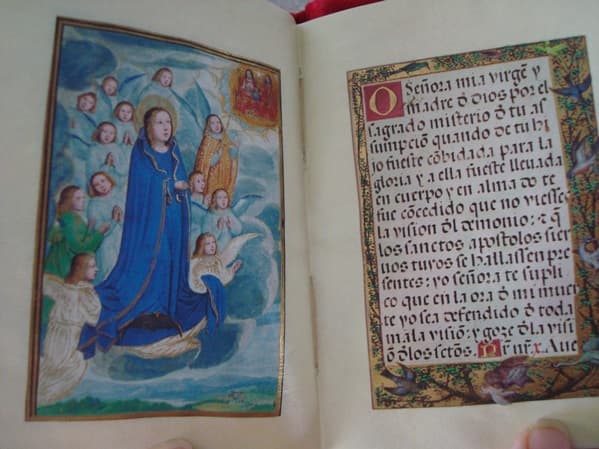 O Señora mia virgẽ y
madre đ dios por el
sagrado misterio đ tu as
sumpcion quando de tu hi
jo fueste cõbidada para la
gloria y a ella fueste lleuada
en cuerpo y en alma do te
fue concedido que no viesses
la vision đl demonio: ⁊ q̃
los sanctos apostolos sier
uos tuyos se hallassen pre
sentes: yo señora te supli
co que en la ora đ mi muer
te yo sea defendido đ toda
mala visiõ: y goze đla visi
on đlos sctõs. Pr̃ nr̃. x. Aue